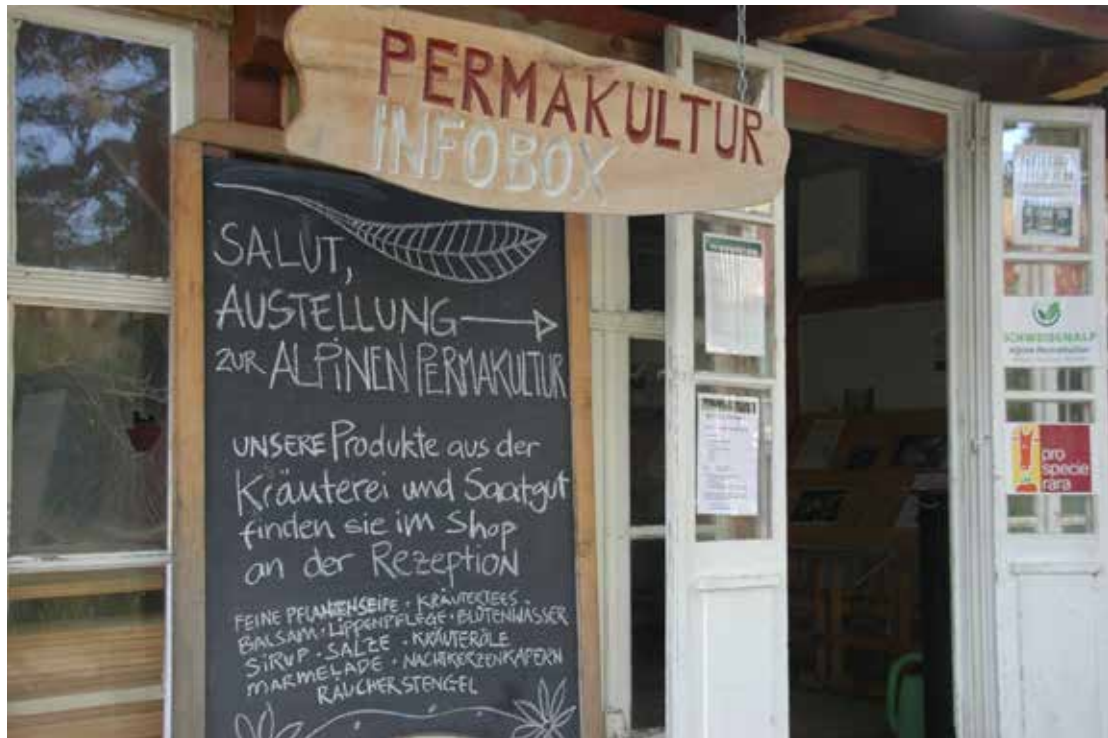 PERMAKULTUR
INFOBOX
SALUT,
AUSTELLUNG
ZUR ALPINEN PERMAKULTUR
UNSERE Produkte aus der
Kräuterei und Saatgut
finden sie im Shop
an der Rezeption
FEINE PFLANZENSEIFE · KRÄUTERTEES
BALSAM · LIPPENPFLEGE · BLÜTENWÄSSER
SIRUP · SALZE · KRÄUTERÖLE
MARMELADE · NACHTKERZENKAPERN
RÄUCHERSTENGEL
SCHWEIBENALP
pro
specie
rara